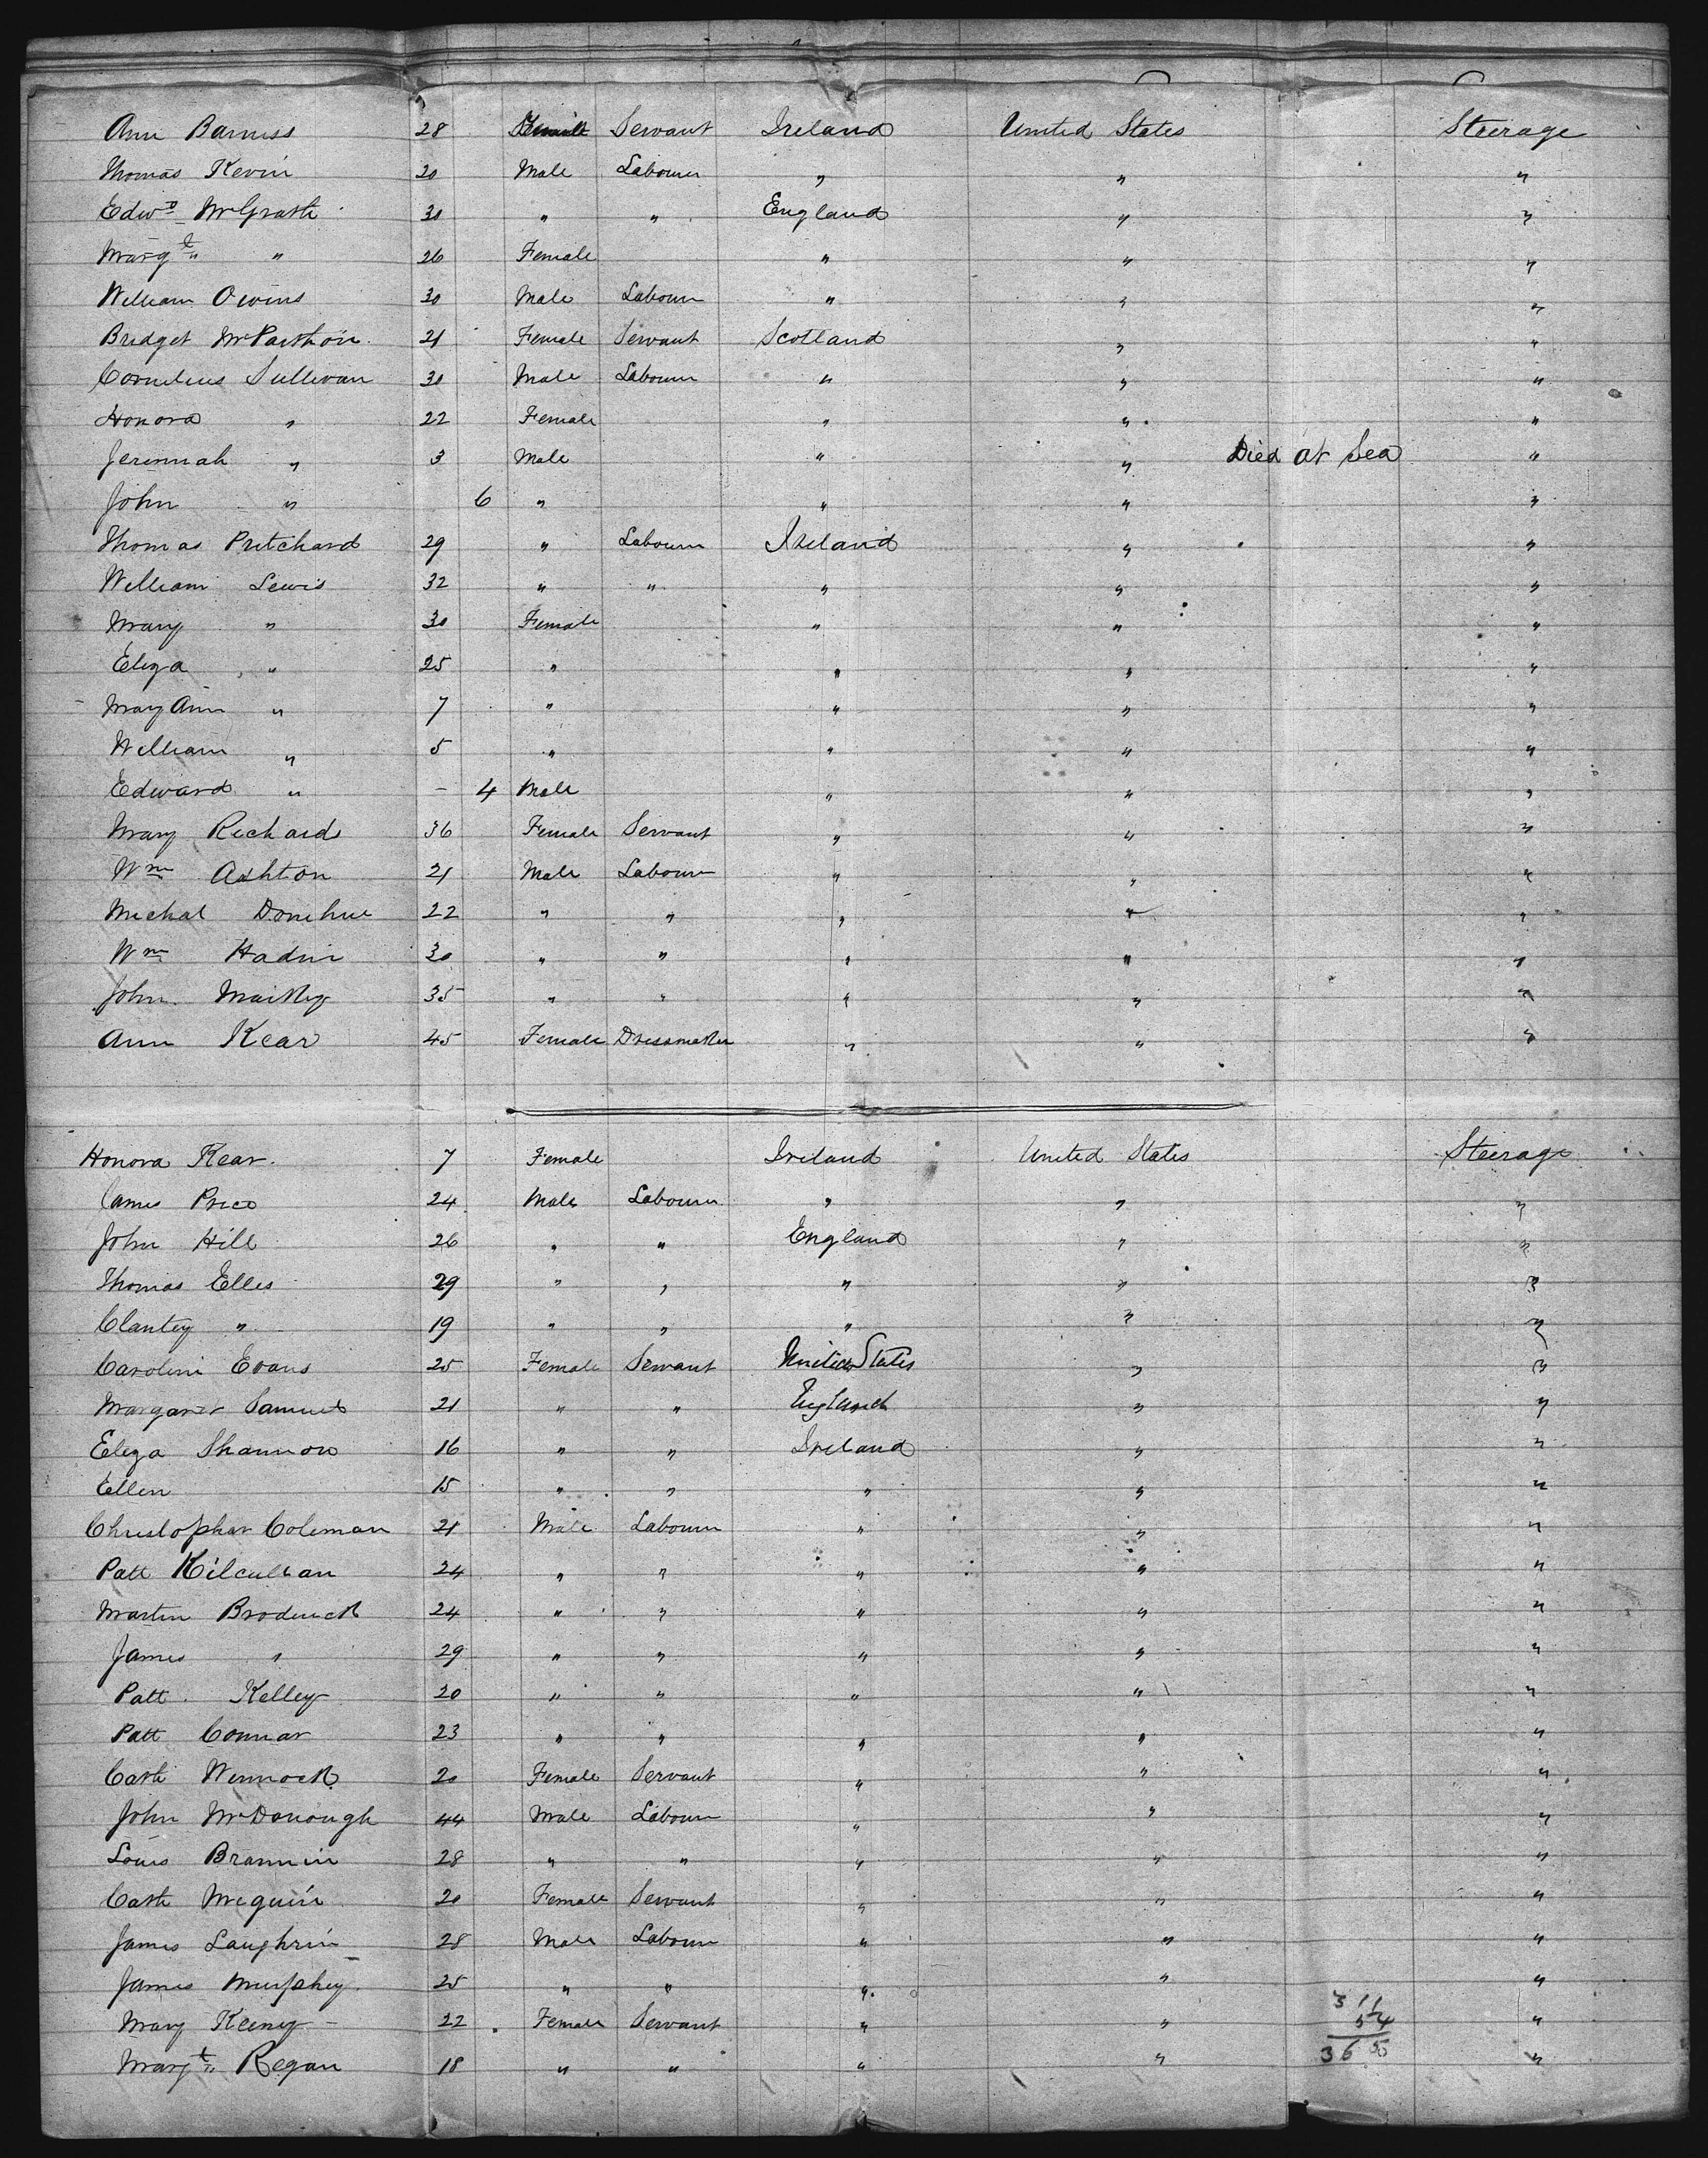 Ann Barness 28 Female Servant Ireland United States Steerage
Thomas Kevin 20 Male Labourer " " "
Edwd McGrath 30 " " England " "
Margt " 26 Female " " "
William Owens 30 Male Labourer " " "
Bridget 21 Female Servant Scotland " "
Cornelius Sullivan 30 Male Labourer " " "
Honora " 22 Female " " "
Jeremiah " 3 Male " " Died at Sea "
John " 6 " " " "
Thomas Pritchard 29 " Labourer Ireland " "
William Lewis 32 " " " " "
Mary " 30 Female " " "
Eliza " 25 " " " "
Mary Ann " 7 " " " "
William " 5 " " " "
Edward " - 4 Male " " "
Mary Richards 36 Female Servant " " "
Wm Ashton 21 Male Labourer " " "
Michal Donehue 22 " " " " "
Wm 30 " " " " "
John 35 " " " " "
Ann Kear 45 Female Dressmaker " " "
Honora Kear 7 Female Ireland United States Steerage
James Price 24 Male Labourer " " "
John Hill 26 " " England " "
Thomas Elles 29 " " " " "
Clantey " 19 " " " " "
Caroline Evans 25 Female Servant United States " "
Margaret Samuels 21 " " England " "
Eliza Shannon 16 " " Ireland " "
Ellen 15 " " " " "
Christopher Coleman 21 Male Labourer " " "
Patt Kilcullan 24 " " " " "
Martin Broderick 24 " " " " "
James " 29 " " " " "
Patt Kelley 20 " " " " "
Patt Connar 23 " " " " "
Cath Winnock 20 Female Servant " " "
John McDonough 44 Male Labourer " " "
Louis Brannin 28 " " " " "
Cath Mcguin 20 Female Servant " " "
James Laughrin 28 Male Labourer " " "
James Murphey 25 " " " " "
Mary Keeney 22 Female Servant " " 311 "
54
Margt Regan 18 " " " " 365 "